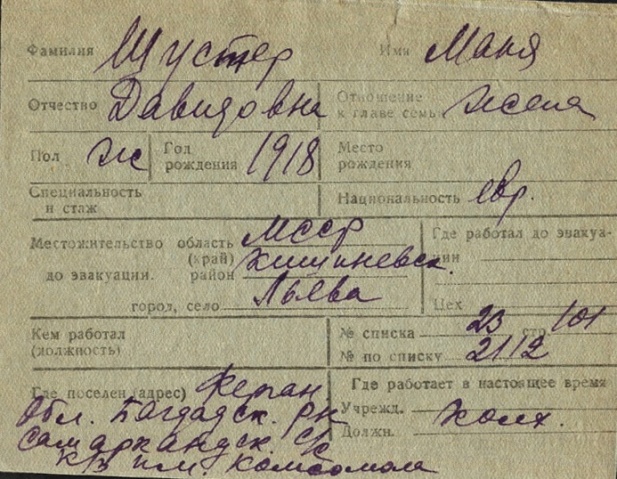 Фамилия Шустер Имя Маня
Отчество Давидовна Отношение к главе семьи жена
Пол ж Год рождения 1918 Место рождения
Специальность и стаж Национальность евр.
Местожительство область МССР Где работал до эвакуа-
(край) Кишиневск. ции
до эвакуации. район
город, село Льева Цех
Кем работал № списка 23 стр. 101
(должность) № по списку 2112
Где поселен (адрес) Ферган. Где работает в настоящее время
Обл. Багдадск. рн Учрежд. колх.
Самаркандск. с/с Должн.
к/з им. Комсомола